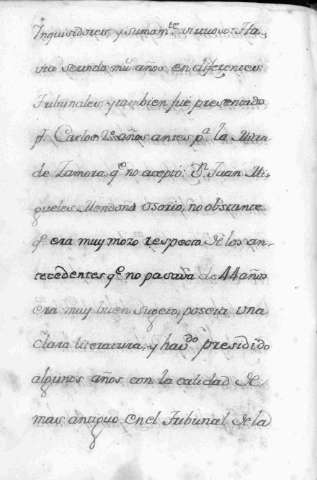 Inquisidores, y sumamte. virtuoso: Ha-
via servido mûs años en diferentes
Tribunales, y tambien fué presentado
pr. Carlos 2o. años antes pa. la Mitra
de Zamora, qe. no aceptó: Dn. Juan Mi-
gueles Mendaña Osorio, no obstante
qe. era muy mozo respecto de los an-
tecedentes qe. no pasava de 44 años
era muy buen sugeto, poseia una
clara literatura, y havdo. presidido
algunos años con la calidad de
mas antiguo en el Tribunal de la